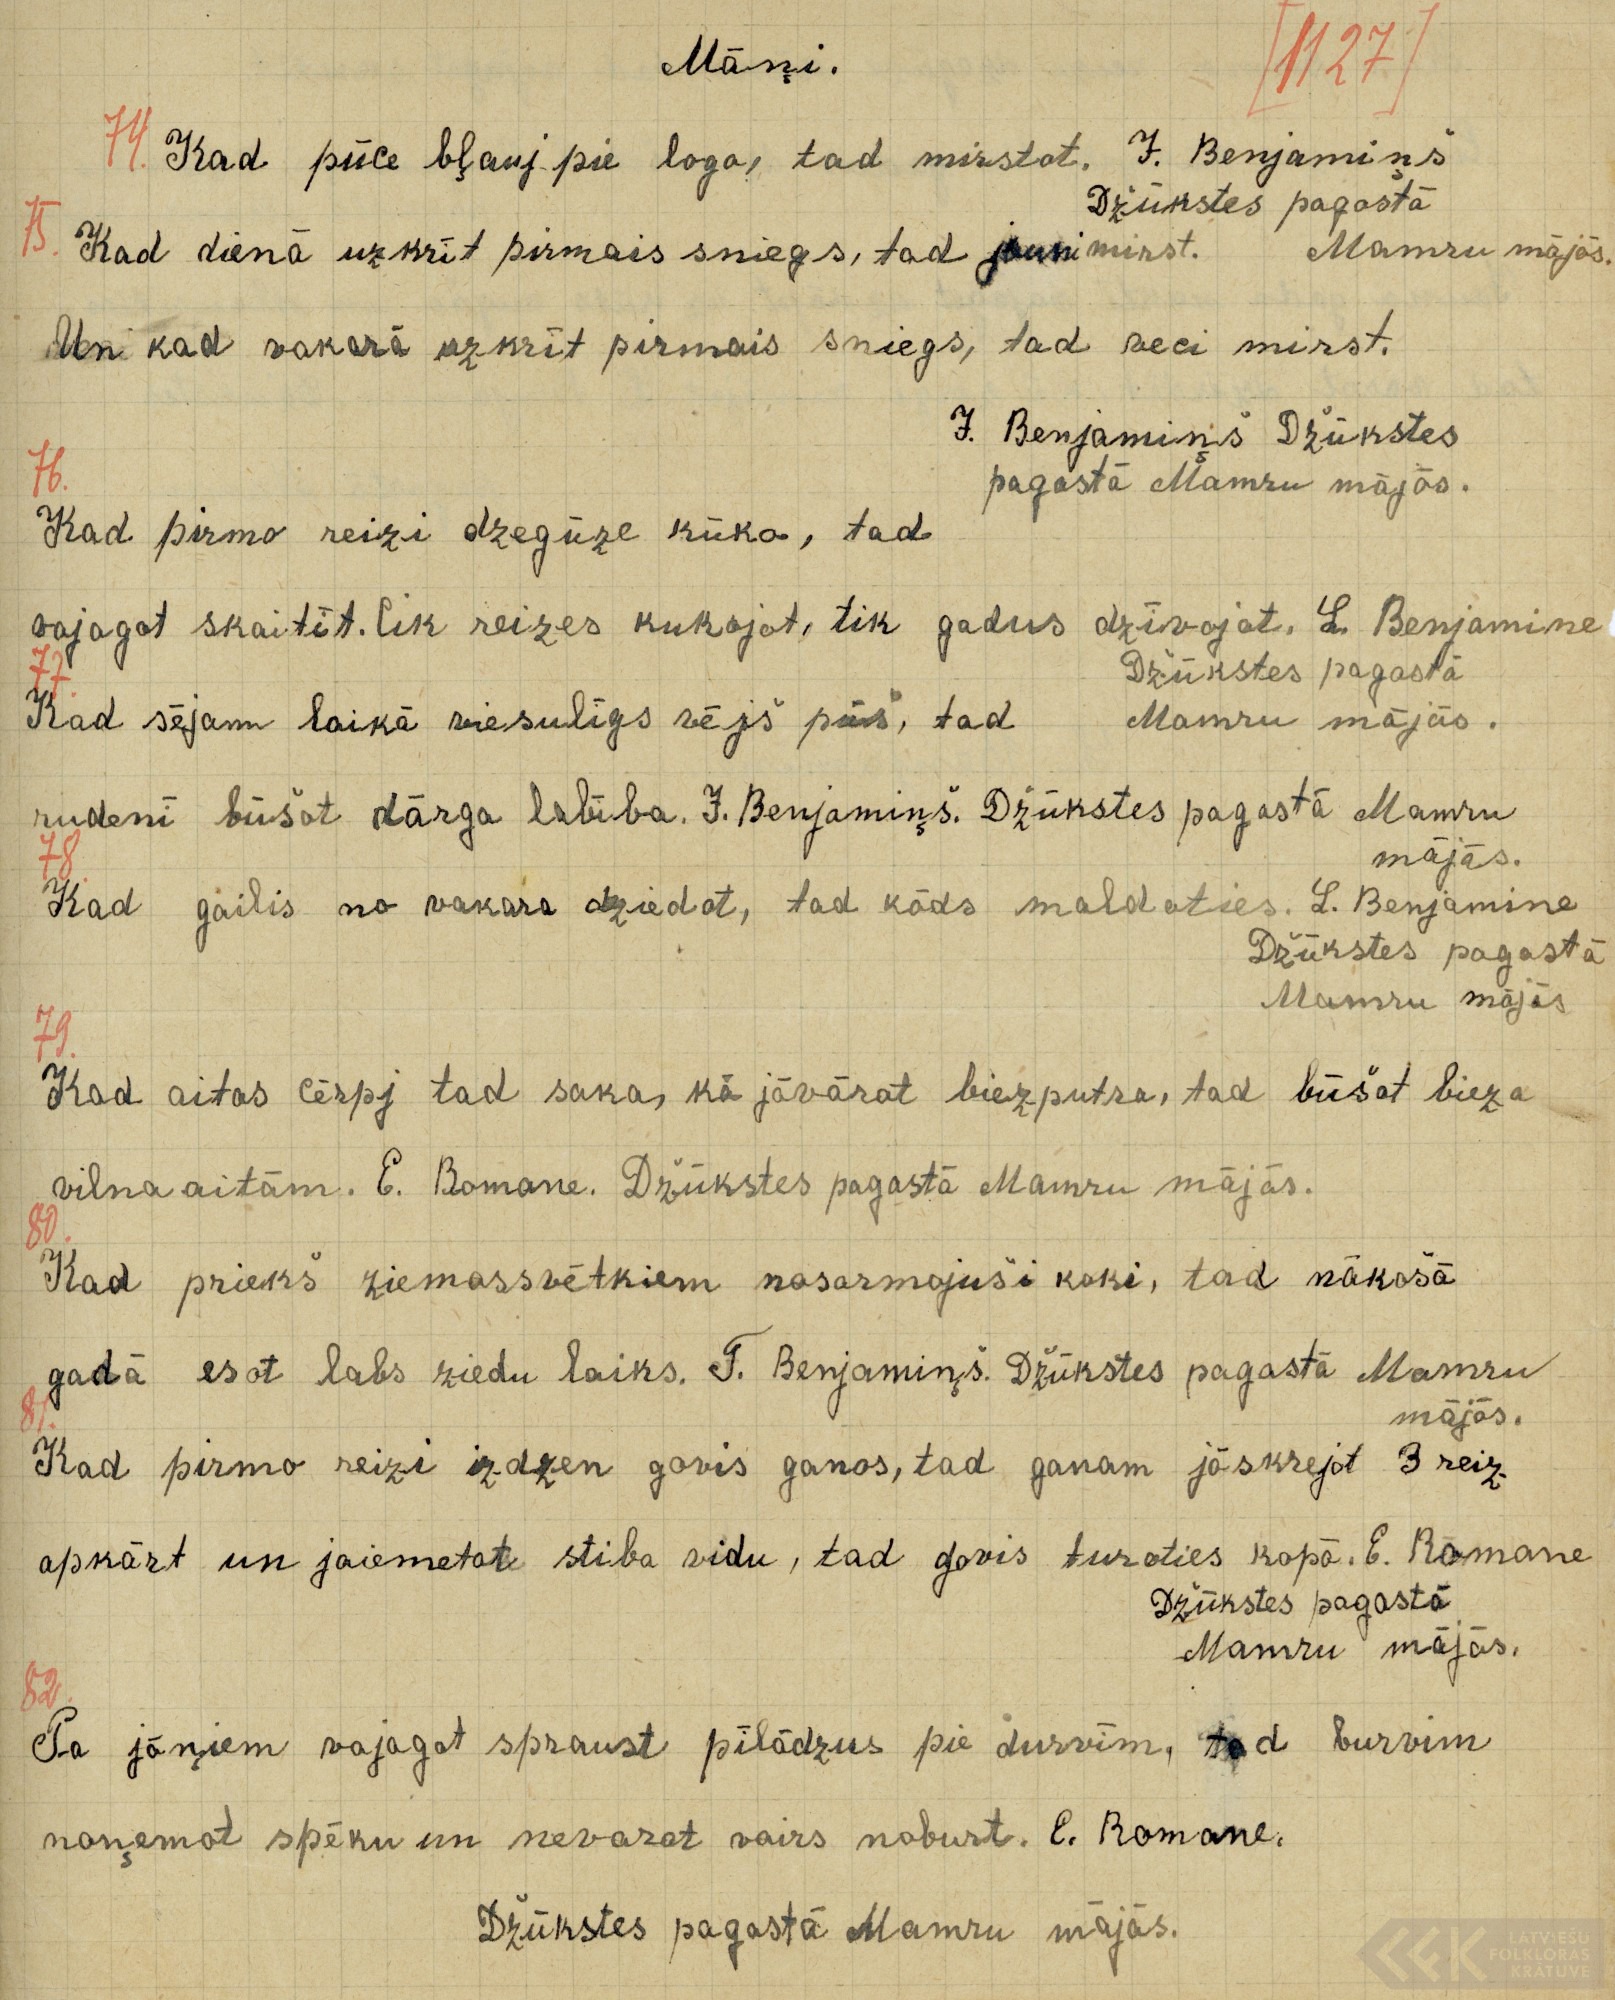 Māņi.
[1127]
74. Kad pūce bļauj pie loga, tad mirstot. J. Benjamiņš
Džūkstes pagastā
75. Kad dienā uzkrīt pirmais sniegs, tad jauni mirst. Mamru mājās.
Un kad vakarā uzkrīt pirmais sniegs, tad veci mirst.
J. Benjamiņš Džūkstes
pagastā Mamru mājās.
76.
Kad pirmo reizi dzegūze kūko, tad
vajagot skaitīt. Cik reizes kukojot, tik gadus dzīvojot. L. Benjamine
Džūkstes pagastā
77.
Kad sējam laikā viesulīgs vējš pūš, tad Mamru mājās.
rudenī būšot dārga labība. J. Benjamiņš. Džūkstes pagastā Mamru
mājās.
78.
Kad gailis no vakara dziedot, tad kāds maldoties. L. Benjamine
Džūkstes pagastā
Mamru mājās
79.
Kad aitas cērpj tad saka, kā jāvārot biezputra, tad būšot bieza
vilna aitām. E. Romane. Džūkstes pagastā Mamru mājās.
80.
Kad priekš ziemassvētkiem nosarmojuši koki, tad nākošā
gadā esot labs ziedu laiks. J. Benjamiņš. Džūkstes pagastā Mamru
mājās.
81.
Kad pirmo reizi izdzen govis ganos, tad ganam jāskrejot 3 reiz
apkārt un jaiemetot stiba vidu, tad govis turoties kopā. E. Romane
Džūkstes pagastā
Mamru mājās.
82.
Pa jāņiem vajagot spraust pīlādzus pie durvīm, tad burvim
noņemot spēku un nevarot vairs noburt. E. Romane.
Džūkstes pagastā Mamru mājās.
LATVIEŠU
FOLKLORAS
KRĀTUVE